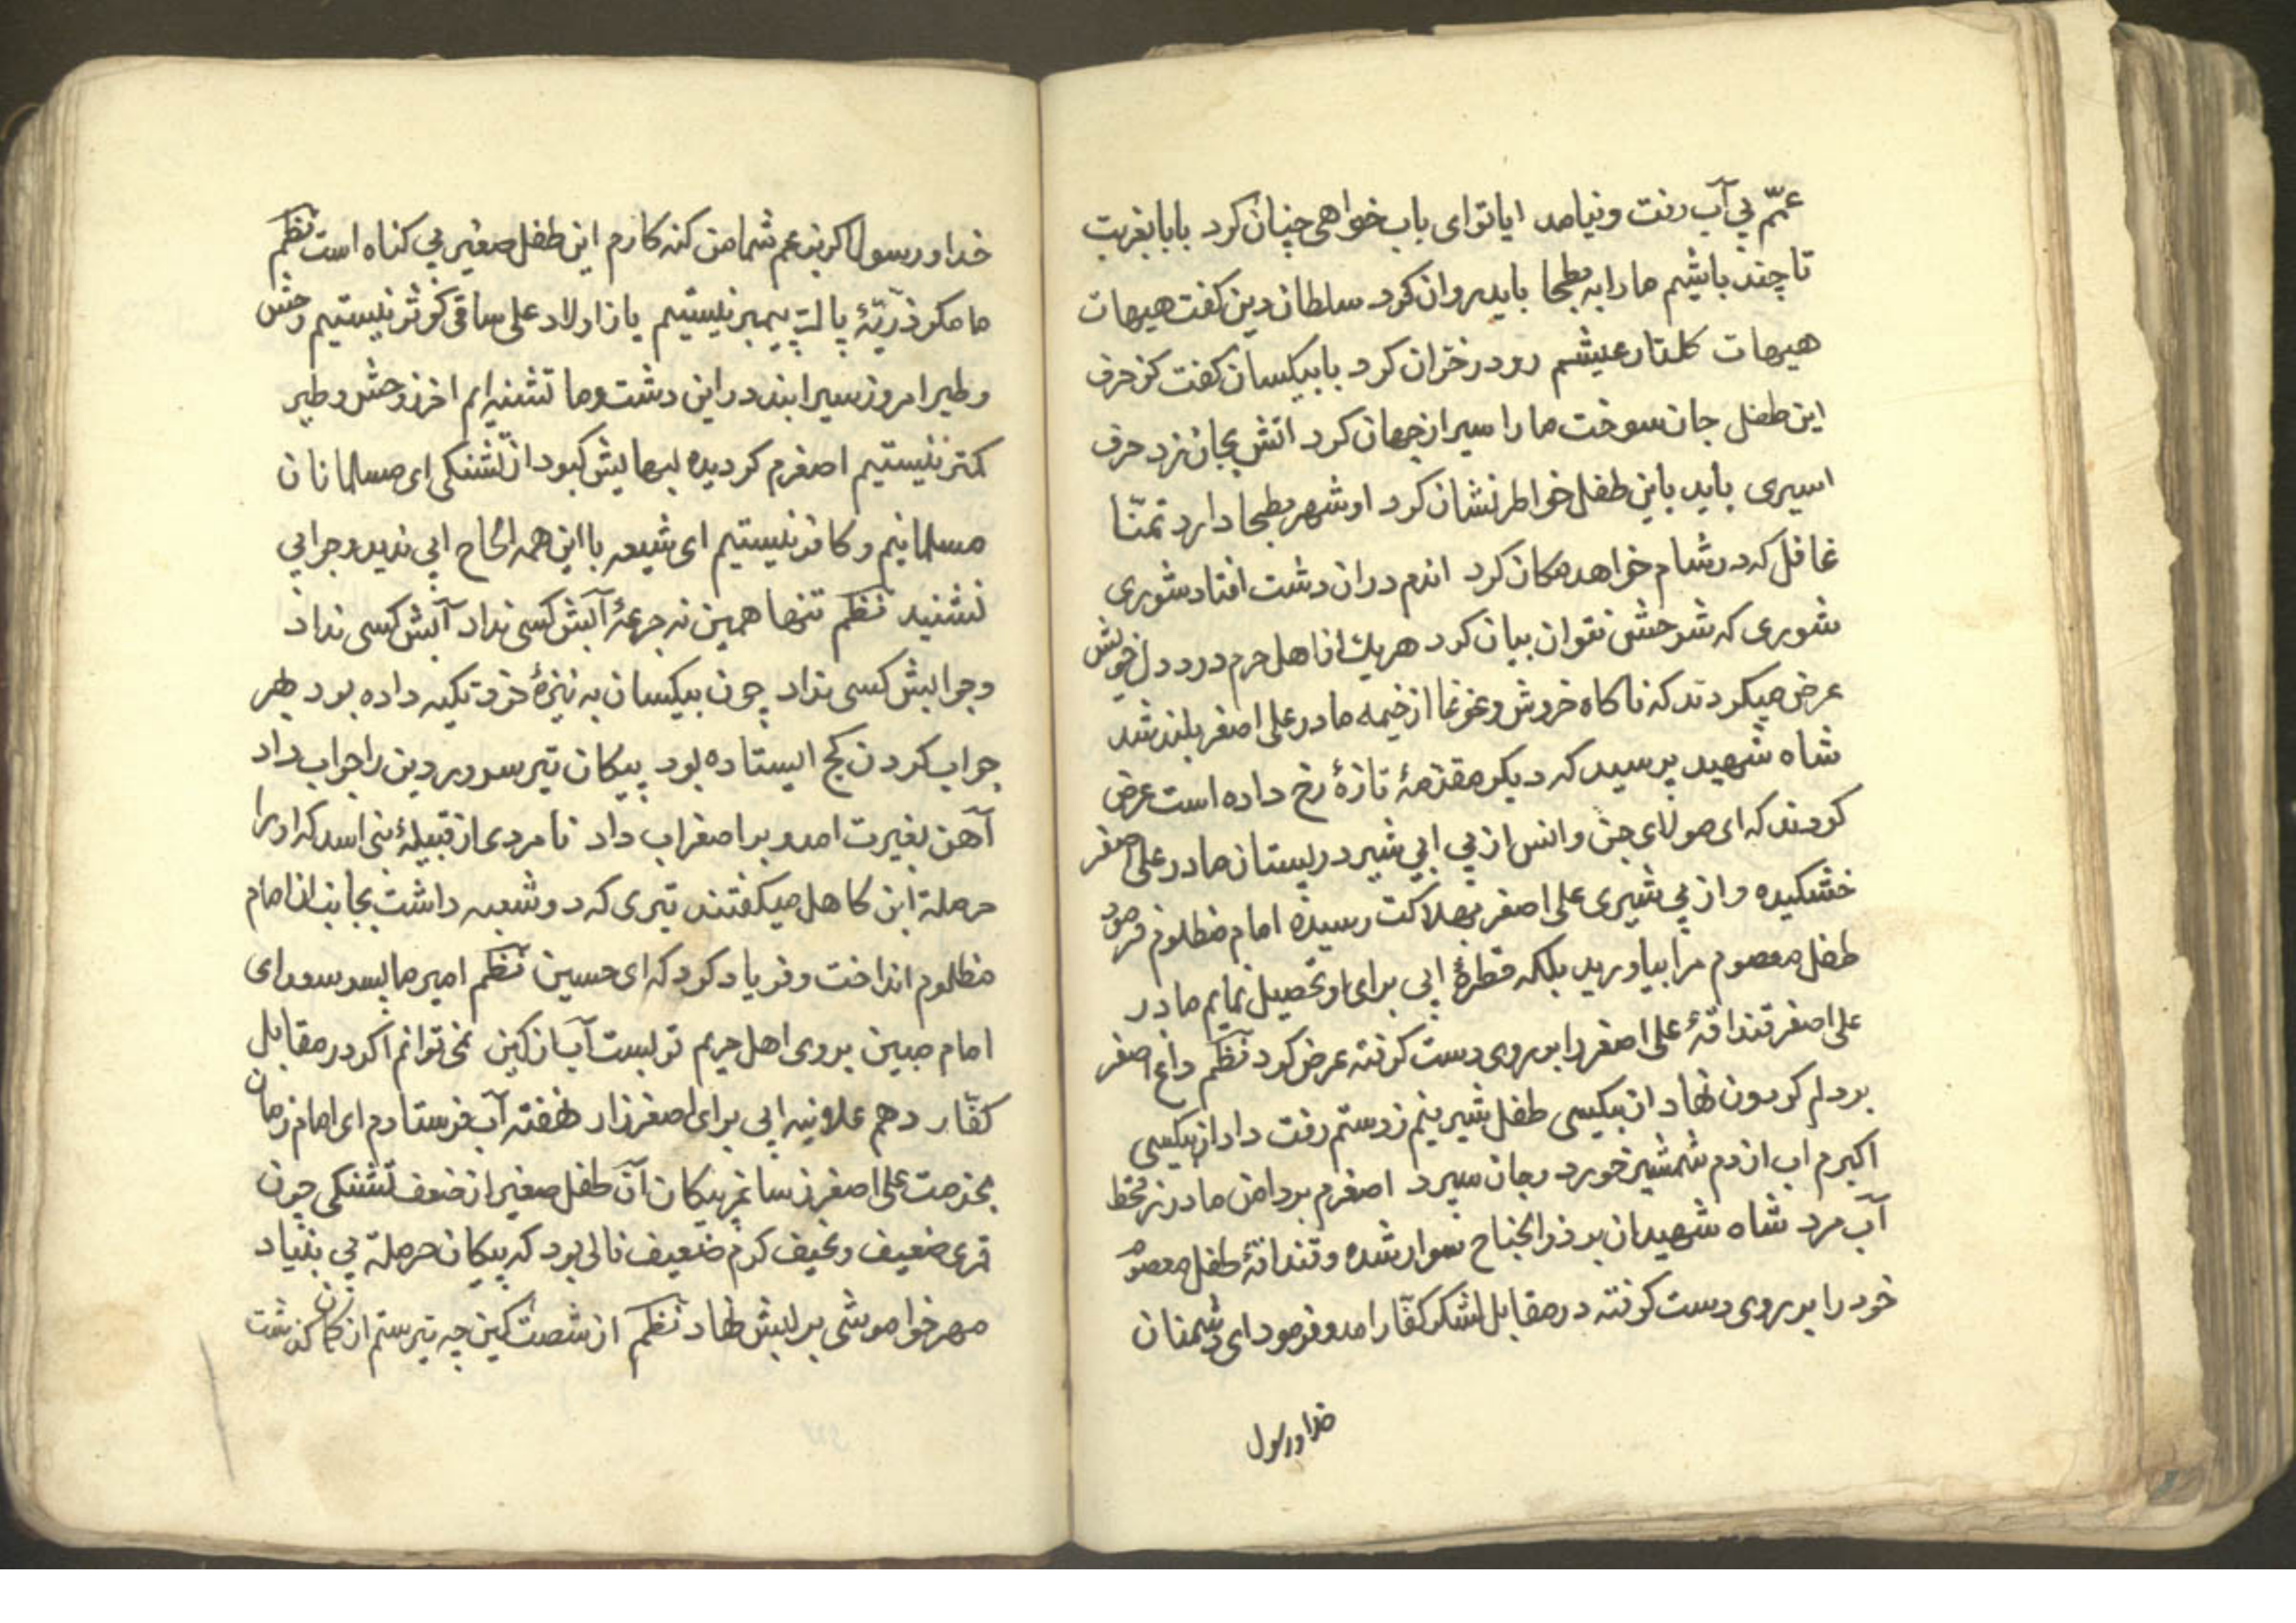 عمّم پی آب رفت و نیامد ایا تو ای باب خواهی چنان کرد بابا بغربت
تا چند باشیم ما را به بطحا باید روان کرد سلطان دین کفت هیهات
هیهات کلتار عیشم رو در خزان کرد با بیکسان کفت کز حرف
این طفل جان سوخت ما را سیر از جهان کرد اتش بجان زد حرف
اسیری باید باین طفل خواطر نشان کرد او شهر بطحا دارد تمنّا
غافل که در شام خواهد مکان کرد اندم دران دشت افتاد شوری
شوری که شرحش نتوان بیان کرد هر یک از اهل حرم درد دل خویش
عرض میکردند که ناکاه خروش و غوغا از خیمه مادر علی اصغر بلند شد
شاه شهید پرسید که دیکر مقدّمهٔ تازهٔ رخ داده است عرض
کردند که ای مولای جن و انس از بی ابی شیر در پستان مادر علی اصغر
خشکیده و از بی شیری علی اصغر بهلاکت رسیده امام مظلوم فرمود
طفل معصوم مرا بیاورید بلکه قطرهٔ ابی برای او تحصیل نمایم مادر
علی اصغر قنداقهٔ علی اصغر را بر روی دست کرفته عرض کرد نظم داغ اصغر
بر دلم کردون نهاد از بیکسی طفل شیرینم ز دستم رفت داد از بیکسی
اکبرم اب از دم شمشیر خورد و جان سپرد اصغرم بر دامن مادر ز قحط
آب مرد شاه شهیدان بر ذو الجناح سوار شده و قنداقهٔ طفل معصوم
خود را بر روی دست کرفته در مقابل لشکر کفّار امد و فرمود ای دشمنان
خدا و رسول
خدا و رسول اکر بزعم شما من کنه کارم این طفل صغیر بی کناه است نظم
ما مکر ذرّیهٔ پاک پیمبر نیستیم یا ز اولاد علی ساقی کوثر نیستیم وحش
و طیر امروز سیرابند در این دشت و ما تشنه ایم اخر ز وحش و طیر
کمتر نیستیم اصغرم کردیده لبهایش کبود از تشنکی ای مسلمانان
مسلمانیم و کافر نیستیم ای شیعه با این همه الحاح ابی ندید و جوابی
نشنید نظم تنها همین نه جرعهٔ آبش کسی نداد آبش کسی نداد
و جوابش کسی نداد چون بیکسان به نیزهٔ خود تکیه داده بود بهر
جواب کردن کج ایستاده بود پیکان تیر سرور دین را جواب داد
آهن بغیرت امد و بر اصغر اب داد نامردی از قبیلهٔ بنی اسد که او را
حرملة ابن کاهل میکفتند تیری که دو شعبه داشت بجانب ان امام
مظلوم انداخت و فریاد کرد که ای حسین نظم امیر ما پسر سعد ای
امام مبین بروی اهل حریم تو بست آب از کین نمی توانم اکر در مقابل
کفّار دهم علانیه ابی برای اصغر زار نهفته آب فرستادم ای امام زمان
بخدمت علی اصغر ز ساغر پیکان آن طفل صغیر از ضعف تشنکی چون
قدی ضعیف و نحیف کردم ضعیف نالی بود که پیکان حرملة بی بنیاد
مهر خواموشی بر لبش نهاد نظم از شصت کین چه تیر ستم از کمان کذشت